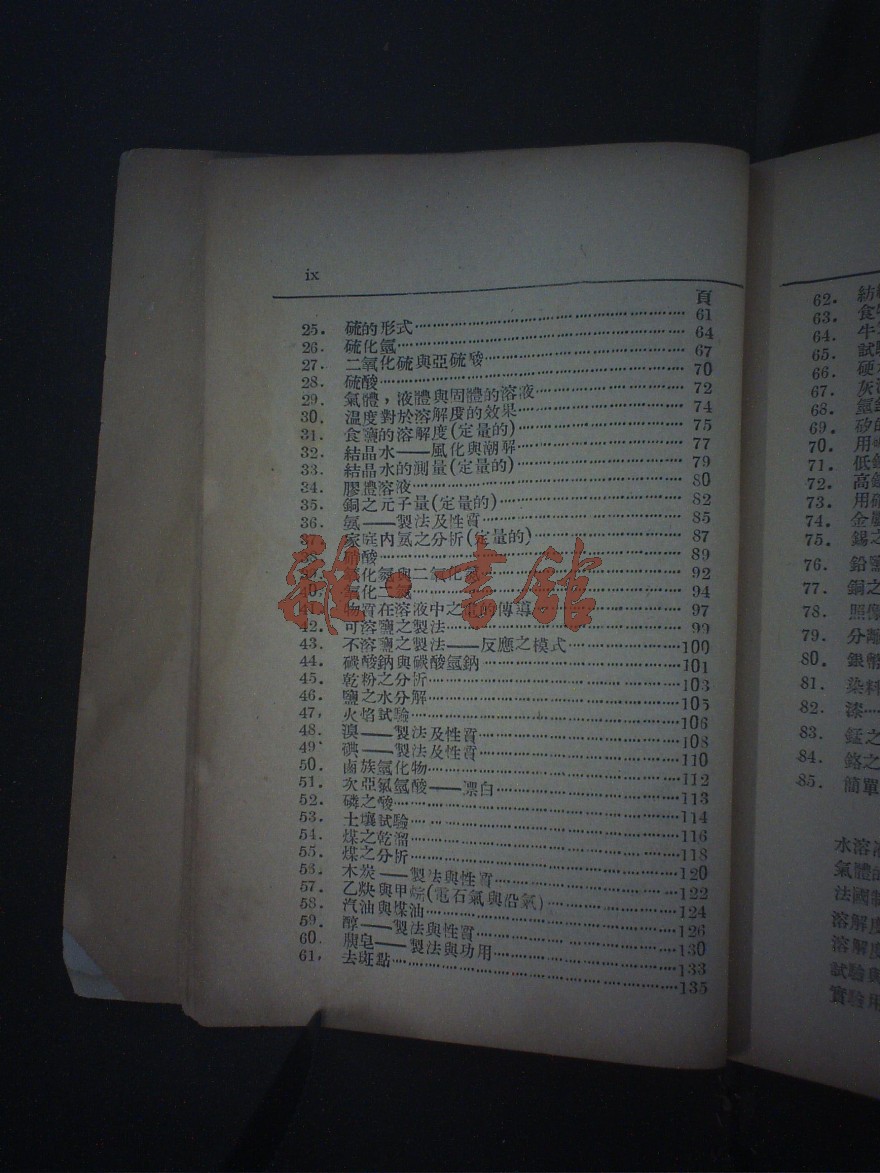 ix
頁
25. 硫的形式 61
26. 硫化氫 64
27. 二氧化硫與亞硫酸 67
28. 硫酸 70
29. 氣體，液體與固體的溶液 72
30. 溫度對於溶解度的效果 74
31. 食鹽的溶解度(定量的) 75
32. 結晶水——風化與潮解 77
33. 結晶水的測量(定量的) 79
34. 膠體溶液 80
35. 銅之元子量(定量的) 82
36. 氨——製法及性質 85
37. 家庭內氨之分析(定量的) 87
38. 硝酸 89
39. 化氮與二氧化氮 92
40. 氧化二氮 94
41. 物質在溶液中之電的傳導 97
42. 可溶鹽之製法 99
43. 不溶鹽之製法——反應之模式 100
44. 碳酸鈉與碳酸氫鈉 101
45. 乾粉之分析 103
46. 鹽之水分解 105
47. 火焰試驗 106
48. 溴——製法及性質 108
49. 碘——製法及性質 110
50. 鹵族氫化物 112
51. 次亞氯氫酸——漂白 113
52. 磷之酸 114
53. 土壤試驗 116
54. 煤之乾溜 118
55. 煤之分析 120
56. 木炭——製法與性質 122
57. 乙炔與甲烷(電石氣與沼氣) 124
58. 汽油與煤油 126
59. 醇——製法與性質 130
60. 胰皂——製法與功用 133
61. 去斑點 135
雜·書館
62. 紡
63. 食
64. 牛
65. 試
66. 硬
67. 灰
68. 氫
69. 矽的
70. 用
71. 低
72. 高
73. 用
74. 金屬
75. 錫之
76. 鉛
77. 銅之
78. 照像
79. 分離
80. 銀幣
81. 染料
82. 漆
83. 錳之
84. 鉻之
85. 簡單
水溶
氣體
法國
溶解度
溶解度
試驗
實驗用